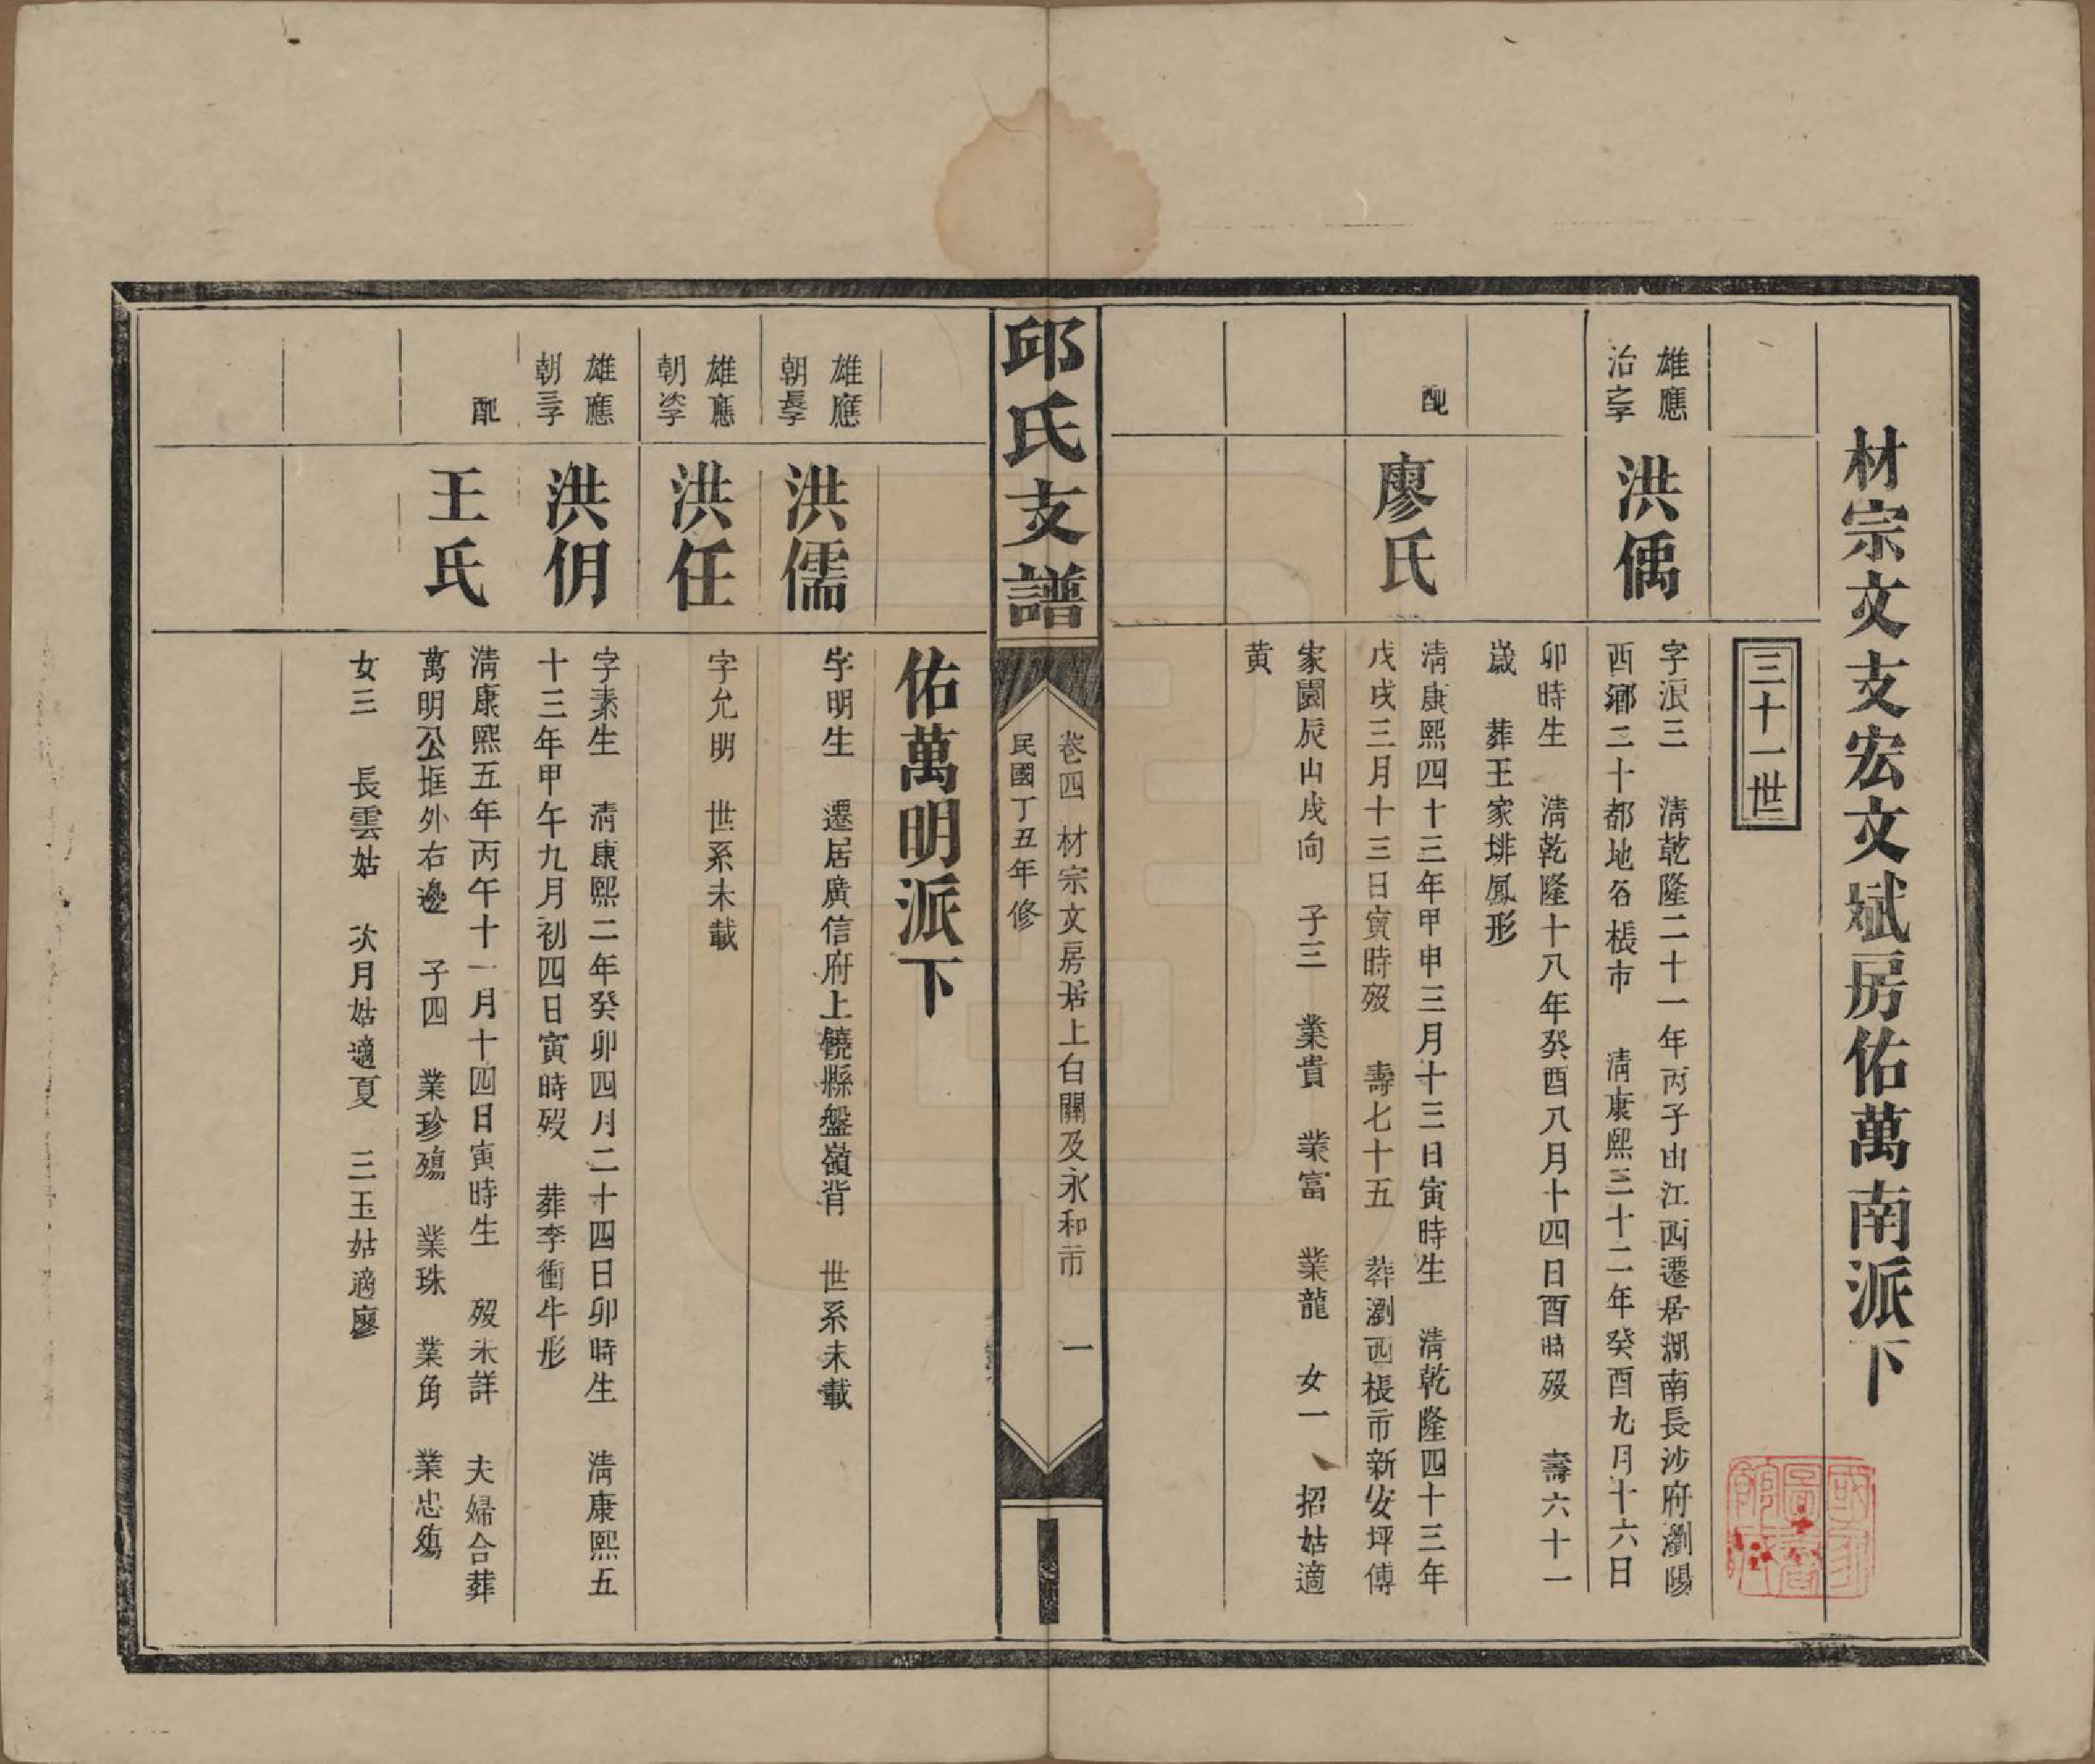 材宗文支宏文斌房佑萬南派下
三十一世
雄應
治之子
洪偊
字浪三　清乾隆二十一年丙子由江西遷居湖南長沙府瀏陽
西鄉二十都地名棖市　清康熙三十二年癸酉九月十六日
卯時生　清乾隆十八年癸酉八月十四日酉時歿　壽六十一
歲　葬王家排鳳形
配
廖氏
清康熙四十三年甲申三月十三日寅時生　清乾隆四十三年
戊戌三月十三日寅時歿　壽七十五　葬瀏西棖市新安坪傅
家園辰山戌向　子三　業貴　業富　業龍　女一　招姑適
黄
邱氏支譜
卷四　材宗文房居上白關及永和市　一
民國丁丑年修
佑萬明派下
雄應
朝長子
洪儒
字明生　遷居廣信府上饒縣盤嶺背　世系未載
雄應
朝次子
洪任
字允明　世系未載
雄應
朝三子
洪仴
字素生　清康熙二年癸卯四月二十四日卯時生　清康熙五
十三年甲午九月初四日寅時歿　葬李衝牛形
配
王氏
清康熙五年丙午十一月十四日寅時生　歿未詳　夫婦合葬
萬明公堆外右邊　子四　業珍殤　業珠　業角　業忠殤
女三　長雲姑　次月姑適夏　三玉姑適廖